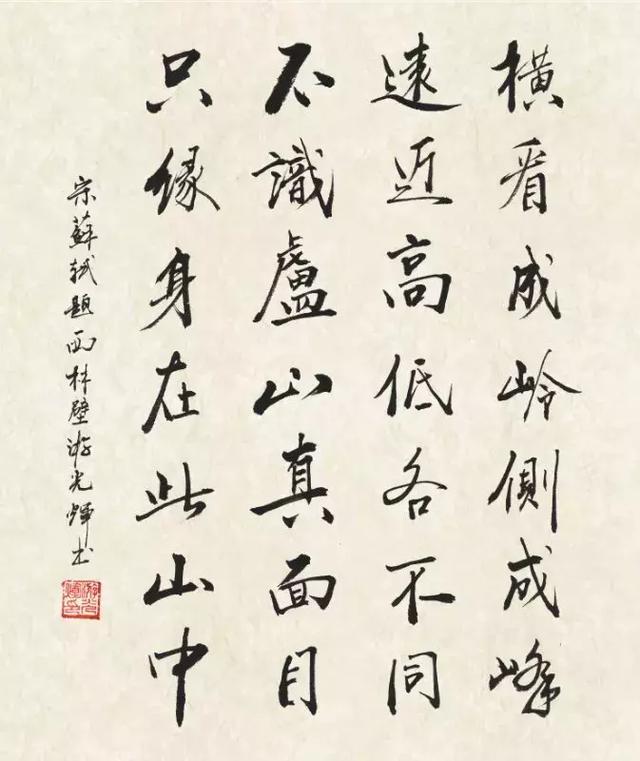 横看成岭侧成峰
遠近高低各不同
不識盧山真面目
只缘身在此山中
宗蘇軾題西林壁游光輝书